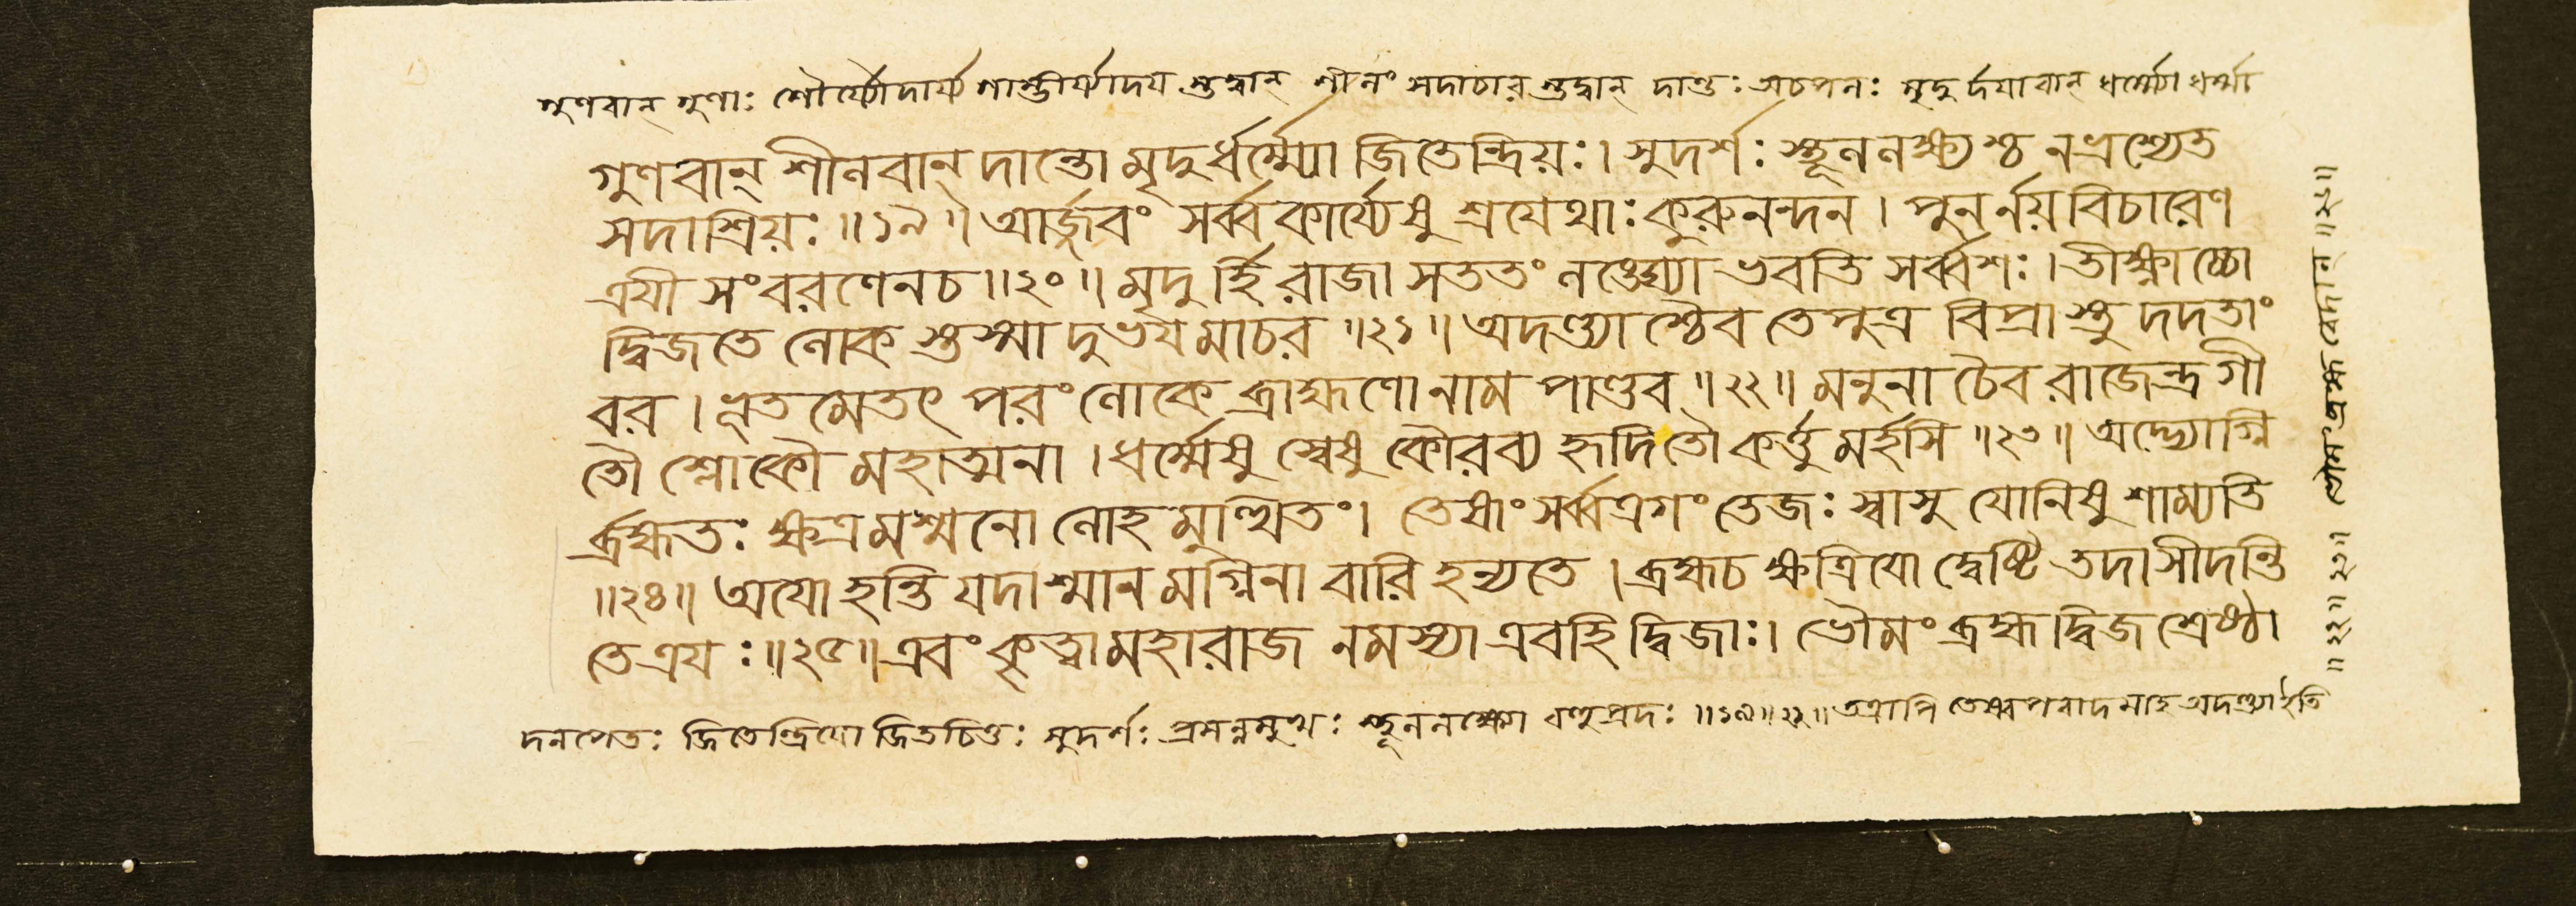 গুণবান্ গুণাঃ শৌর্য্যৌদার্য্য গাম্ভীর্য্যাদয স্তদ্বান্ শীলং সদাচার স্তদ্বান্ দান্তঃ অচপলঃ মৃদু র্দযাবান্ ধর্ম্ম্যো ধর্ম্মা
গুণবান্ শীলবান্ দান্তো মৃদুর্ধর্ম্ম্যো জিতেন্দ্রিয়ঃ। সুদর্শঃ স্থূললক্ষ্যশ্চ নভ্রশ্যেত
সদাশ্রিয়ঃ॥১৯॥ আর্জ্জবং সর্ব্বকার্য্যেষু শ্রযেথাঃ কুরুনন্দন। পুনর্নয়বিচারেণ
ত্রযী সংবরণেনচ॥২০॥ মৃদুর্হি রাজা সততং লঙ্ঘ্যো ভবতি সর্ব্বশঃ। তীক্ষ্ণাচ্চো
দ্বিজতে লোক স্তস্মা দুভযমাচর॥২১॥ অদণ্ড্যাশ্চৈব তেপুত্র বিপ্রাস্তু দদতাং
বর। ভূতমেতৎ পরং লোকে ব্রাহ্মণো নাম পাণ্ডব॥২২॥ মনুনা চৈব রাজেন্দ্র গী
তৌ শ্লোকৌ মহাত্মনা। ধর্ম্মেষু স্বেষু কৌরব্য হৃদি তৌ কর্ত্তু মর্হসি॥২৩॥ অদ্ভ্যোগ্নি
র্ব্রহ্মতঃ ক্ষত্রমশ্মনো লোহমুত্থিতং। তেষাং সর্ব্বত্রগং তেজঃ স্বাসু যোনিষু শাম্যতি
॥২৪॥ অযো হন্তি যদাশ্মান মগ্নিনা বারি হন্যতে। ব্রহ্মচ ক্ষত্রিযো দ্বেষ্টি তদা সীদন্তি
তে ত্রযঃ॥২৫॥ এবং কৃত্বা মহারাজ নমস্যা এবহি দ্বিজাঃ। ভৌমং ব্রহ্ম দ্বিজশ্রেষ্ঠা
দনপেতঃ জিতেন্দ্রিযো জিতচিত্তঃ সুদর্শঃ প্রসন্নমুখঃ স্থূললক্ষ্যো বহুপ্রদঃ॥১৯॥২১॥ তত্রাপি তেষ্বপবাদ মাহ অদণ্ড্যাইতি
॥২২॥২৫॥ ভৌমং ব্রহ্ম বেদান্॥২৬॥